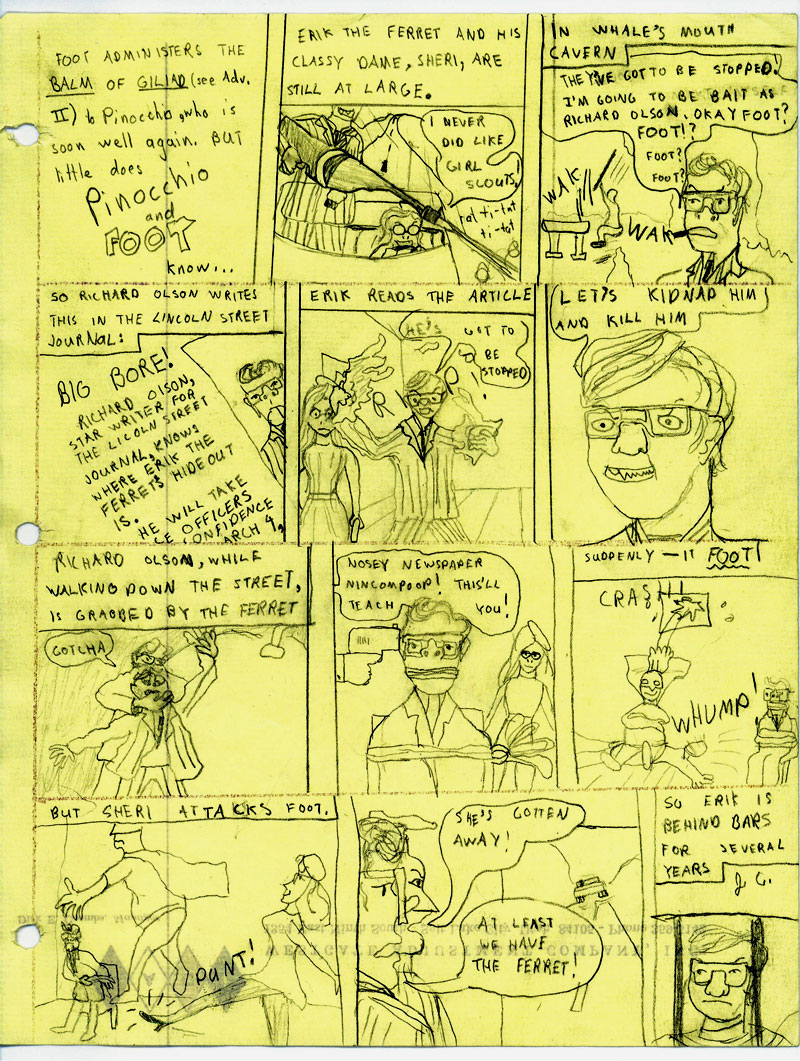 FOOT ADMINISTERS THE
BALM OF GILIAD (see Adv.
II) to Pinocchio, who is
soon well again. BUT
little does
Pinocchio
and
FOOT
know...
ERIK THE FERRET AND HIS
CLASSY DAME, SHERI, ARE
STILL AT LARGE.
I NEVER
DID LIKE
GIRL
SCOUTS!
tat-ti-tat
ti-tat
IN WHALE'S MOUTH
CAVERN
THEY'VE GOT TO BE STOPPED!
I'M GOING TO BE BAIT AS
RICHARD OLSON, OKAY FOOT?
FOOT!?
FOOT?
FOOT?
WAK
WAK
SO RICHARD OLSON WRITES
THIS IN THE LINCOLN STREET
JOURNAL:
BIG BORE!
RICHARD OLSON,
STAR WRITER FOR
THE LICOLN STREET
JOURNAL, KNOWS
WHERE ERIK THE
FERRET'S HIDEOUT
IS.
HE WILL TAKE
CE OFFICERS
CONFIDENCE
ARCH 4,
ERIK READS THE ARTICLE
HE'S GOT TO
BE
STOPPED
R I P!
LET'S KIDNAP HIM
AND KILL HIM
RICHARD OLSON, WHILE
WALKING DOWN THE STREET,
IS GRABBED BY THE FERRET
GOTCHA
NOSEY NEWSPAPER
NINCOMPOOP! THIS'LL
TEACH YOU!
SUDDENLY — IT FOOT!
CRASH!!
WHUMP!
BUT SHERI ATTACKS FOOT.
PUNT!
SHE'S GOTTEN
AWAY!
AT LEAST
WE HAVE
THE FERRET!
SO ERIK IS
BEHIND BARS
FOR SEVERAL
YEARS
J C.
WESTGATE ADJUSTMENT COMPANY, INC.